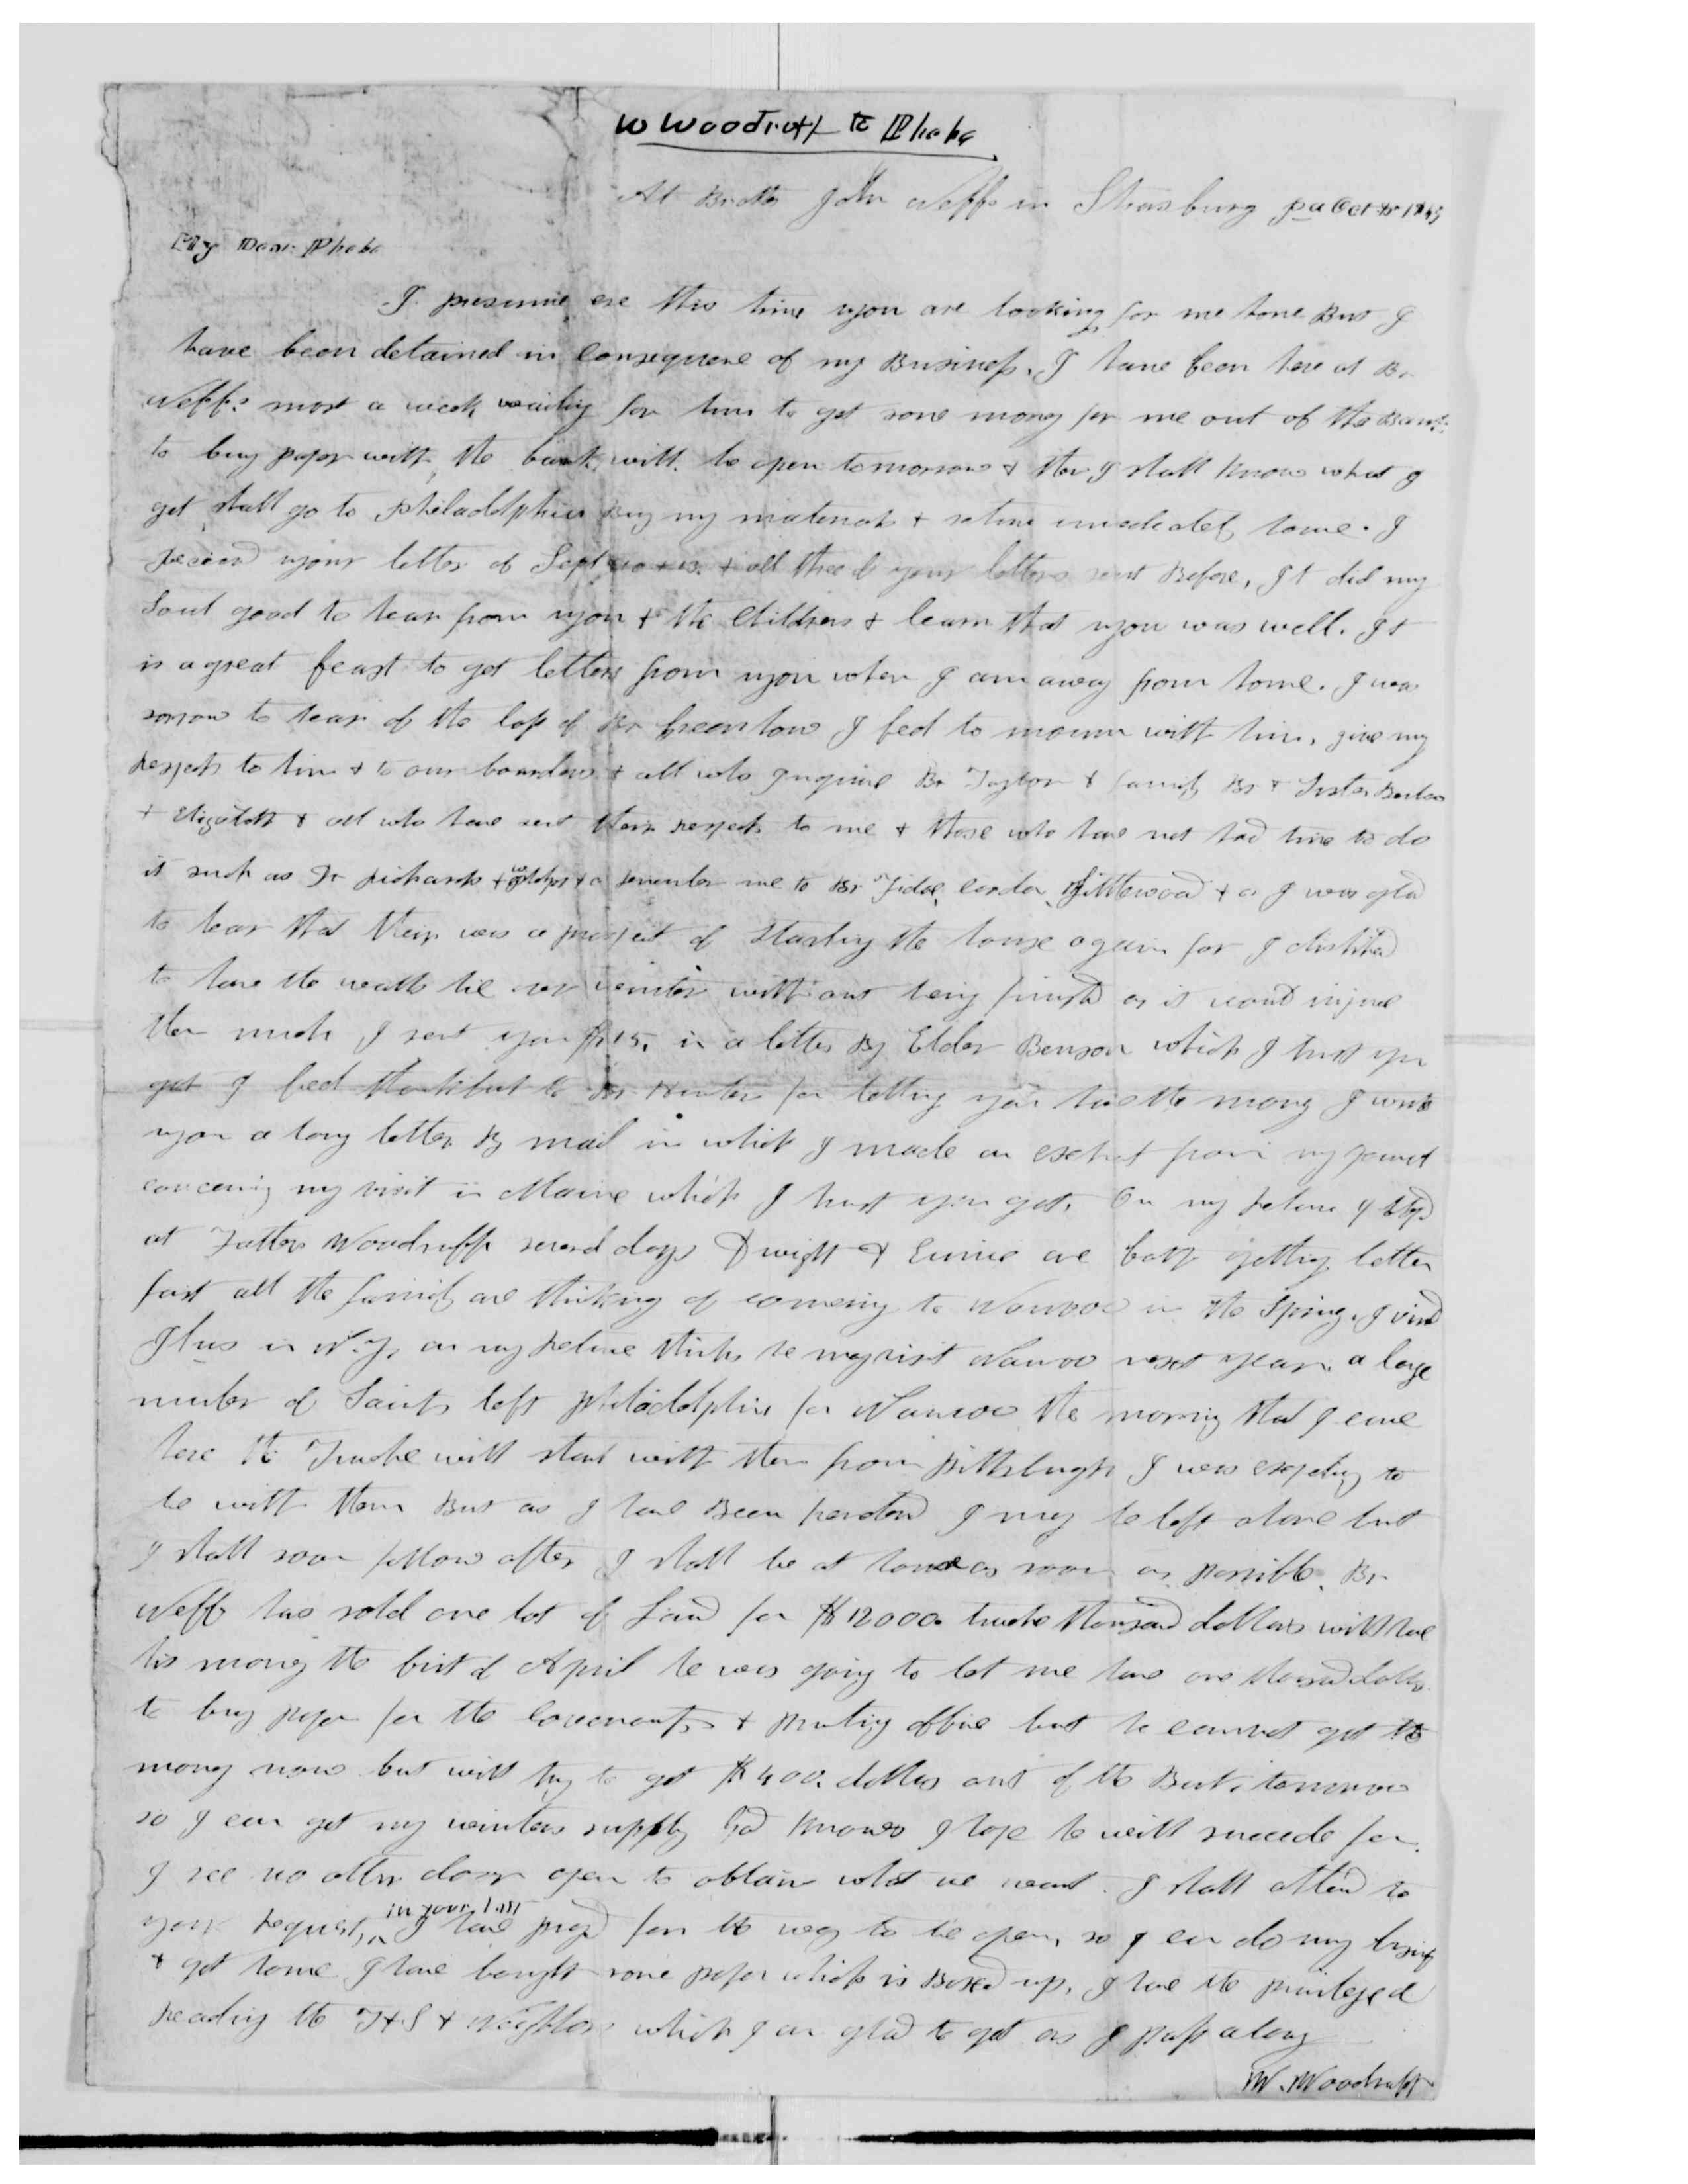 W Woodruff to Phebe
At Brother John Neffs in Strasburg pa Oct 1843
My Dear Phebe
I presume ere this time you are looking for me home But I
have been detained in consequence of my Business. I have been here at Br
Neffs most a week waiting for him to get some money for me out of the Bank
to buy paper with, the bank will be open tomorrow & then I shall know what I
get shall go to Philadelphia buy my materials & return immediately home. I
received your letter of Sept & all three of your letters sent Before, It did my
Soul good to hear from you & the Children & learn that you was well. It
is a great feast to get letters from you when I am away from home. I was
sorrow to hear of the loss of Br Greenhow I feel to mourn with him, give my
respects to him & to our boarders & all who inquire Br Taylor & family Br & Sister
& Elizabeth & all who have sent their respects to me & those who have not had time to do
it such as Dr Richards & remember me to Br Fidoe, Littlewood & I was glad
to hear that their was a prospect of starting the house again for I disliked
to have the walls lie over winter without being finished as it would injure
them much I sent you $15, in a letter By Elder Benson which I trust you
got I feel thankful to Br Hunter for letting you have the money I wrote
you a long letter By mail in which I made an extract from my journal
concerning my visit in Maine which I trust you got. On my return I stopd
at Father Woodruffs several days Dwight & Eunice are both getting better
fast all the family are thinking of comeing to Nauvoo in the Spring. I visited
Ilus in N.Y, on my return thinks he may visit Nauvoo next year. a large
number of Saints left Philadelphia for Nauvoo the morning that I came
here the Twelve will start with them from Pittsburgh I was expecting to
be with them But as I have Been hendered I may be left alone but
I shall soon follow after I shall be at home as soon as possible. Br
Neff has sold one lot of Land for $12000 twelve thousand dollars will have
his money the first of April he was going to let me have one thousand dollars
to buy paper for the Covenants & printing office but he cannot get the
money now but will try to get $400. dollars out of the Bank tomorrow
so I can get my winters supply God knows I hope he will succede for
I see no other door open to obtain what we want. I shall attend to
your request, in your last I have prayd for the way to be open, so I can do my business
& get home I have bought some paper which is Boxed up, I have the privilege of
reading the T & S & Neighbor which I am glad to get as I pass along
W. Woodruff